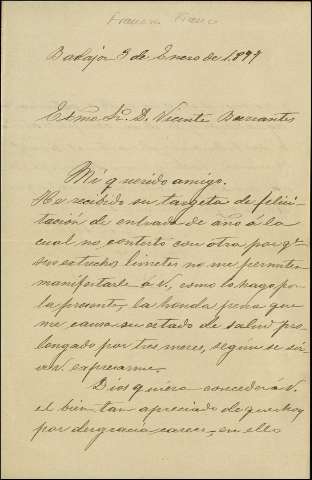 Franco Franco
Badajoz 3 de Enero de 1.897
Exmo Sr. D. Vicente Barrantes
Mi querido amigo.
He recibido su targeta de felici-
tación de entrada de año á la
cual no contesto con otra por qe
sus estrechos limites no me permiten
manifestarle á V., como lo hago por
la presente, la honda pena que
me causa su estado de salud pro-
longado por tres meses, según se sir-
ve V. expresarme.
Dios quiera conceder á V.
el bien tan apreciado de que hoy
por desgracia carece, en ello